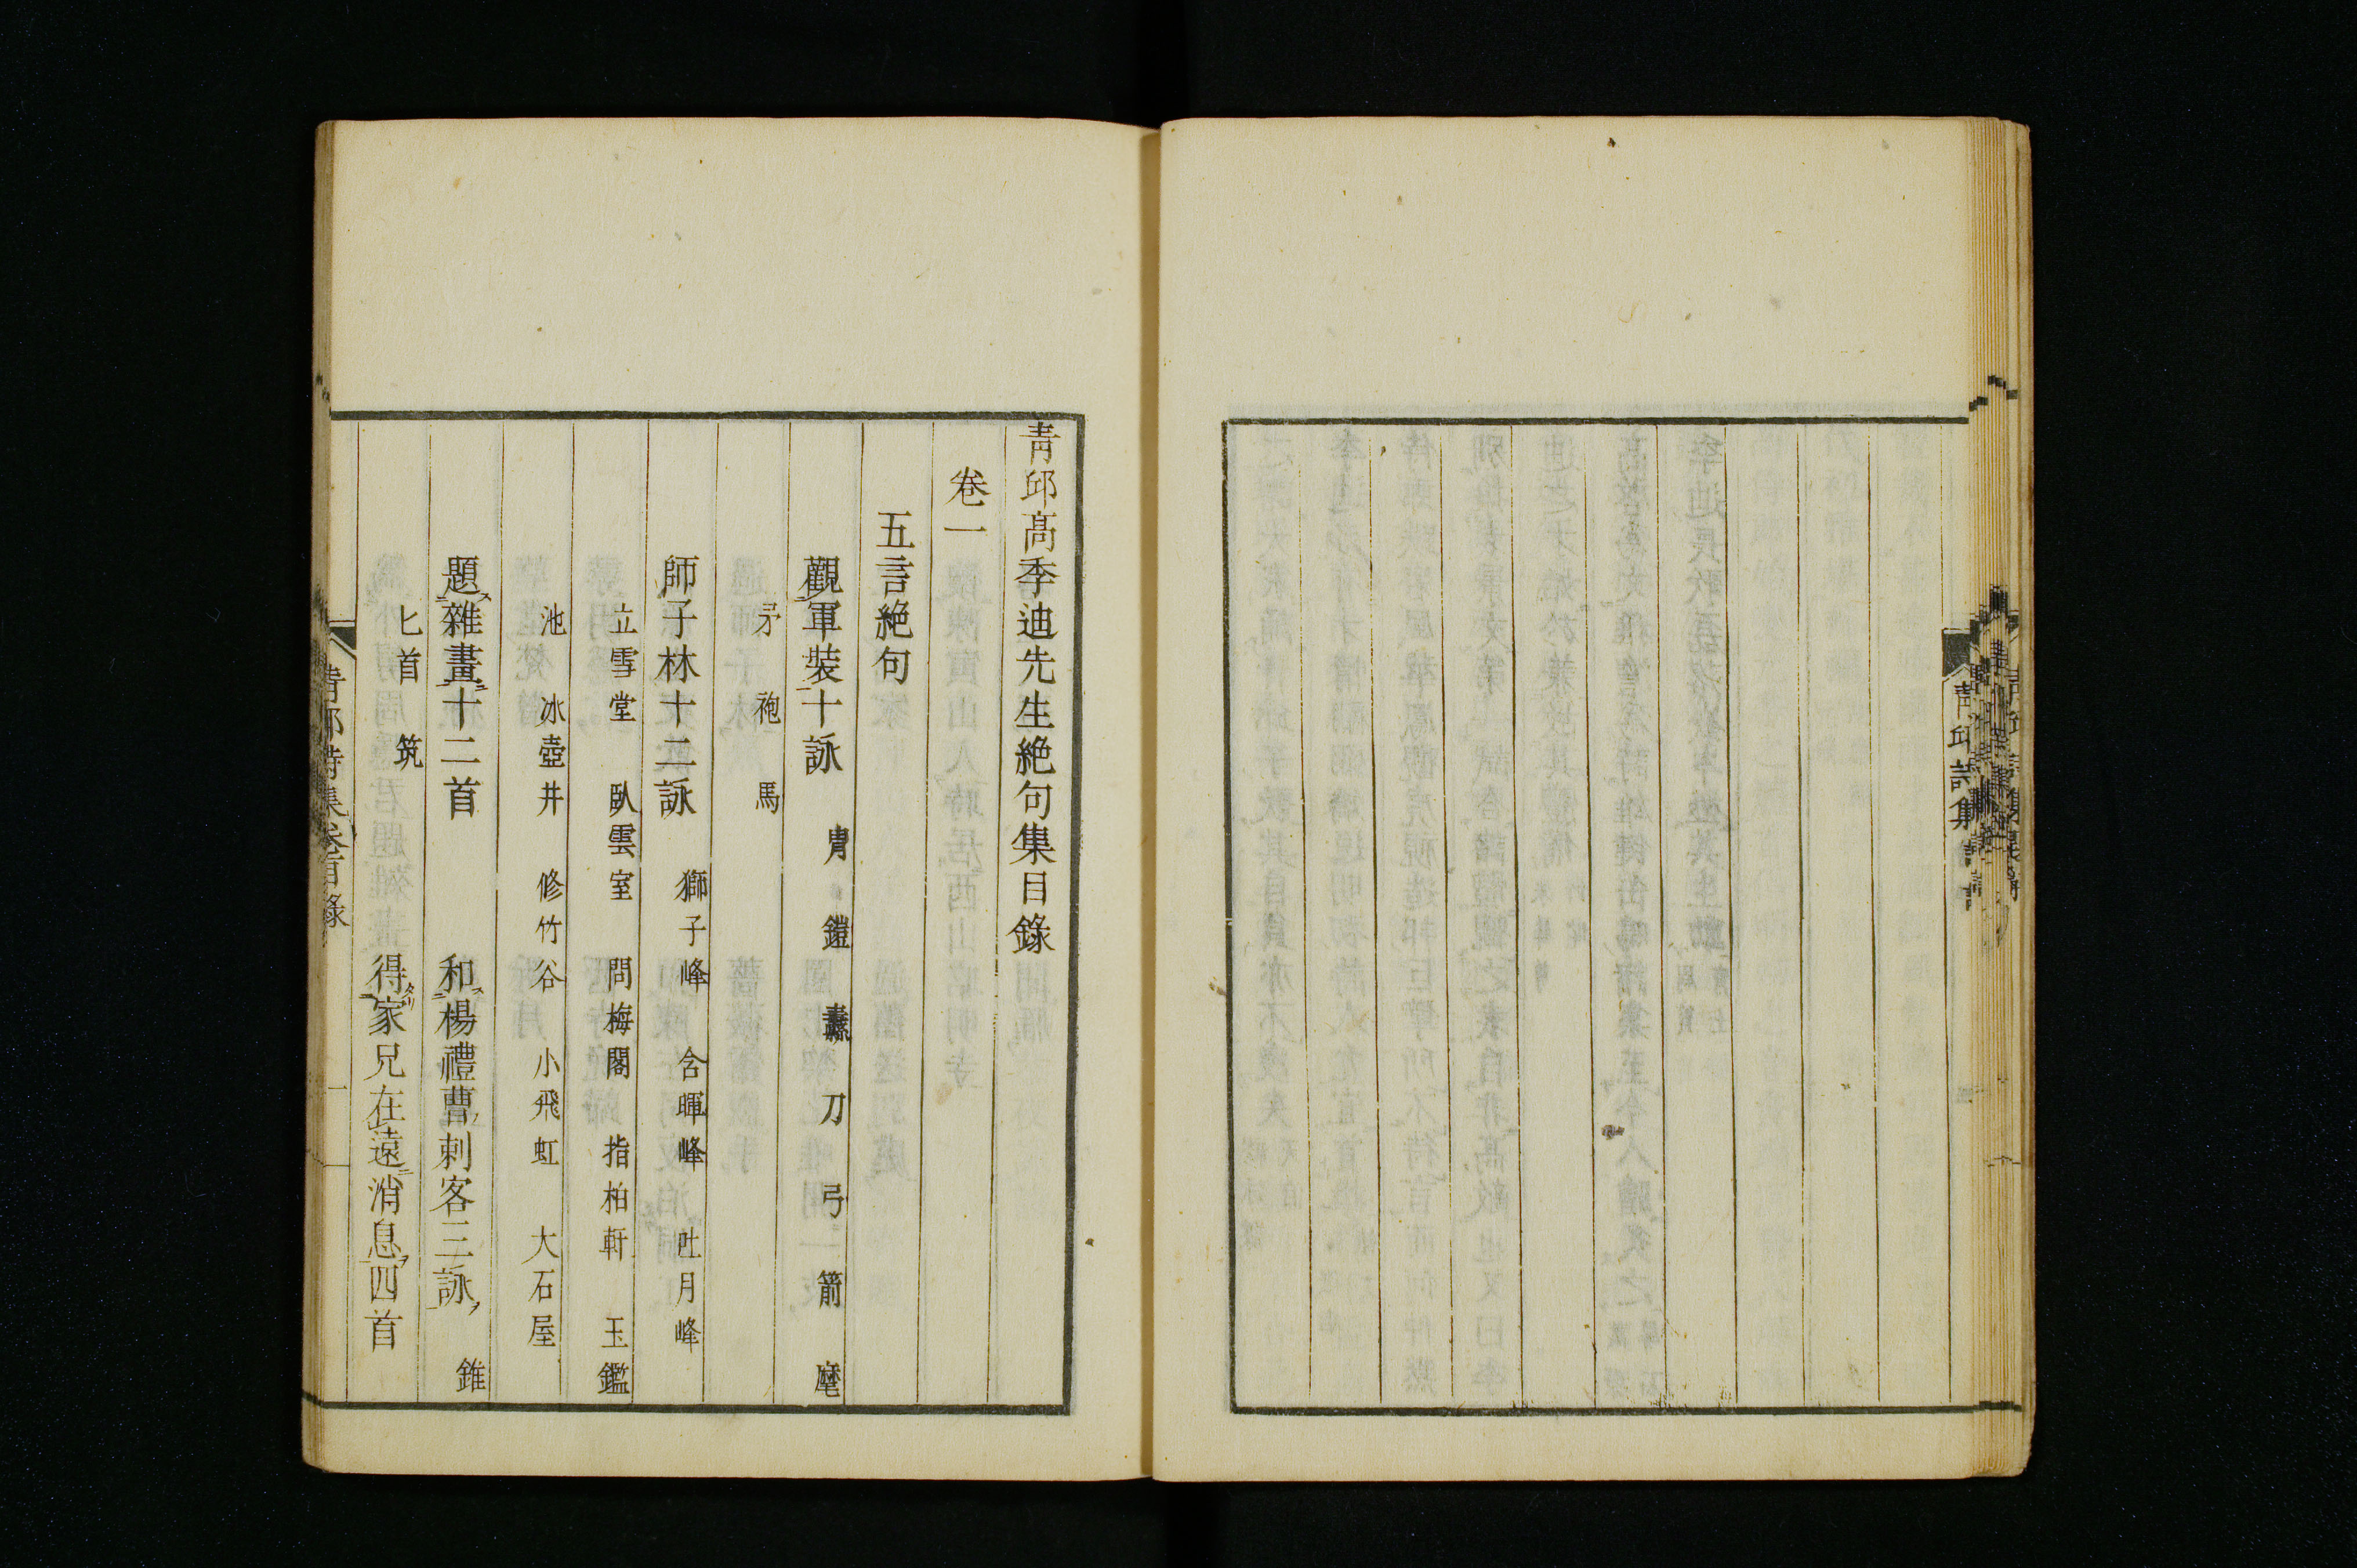 青邱詩集
青邱高季迪先生絶句集目錄
卷一
五言絶句
觀軍裝十詠 胄 鎧 纛 刀 弓 箭 麾
矛 袍 馬
師子林十二詠 獅子峰 含暉峰 吐月峰
立雪堂 臥雲室 問梅閣 指柏軒 玉鑑
池 冰壺井 修竹谷 小飛虹 大石屋
題雜畫十二首 和楊禮曹刺客三詠 錐
匕首 筑 得家兄在遠消息四首
青邱詩集卷首目錄 一